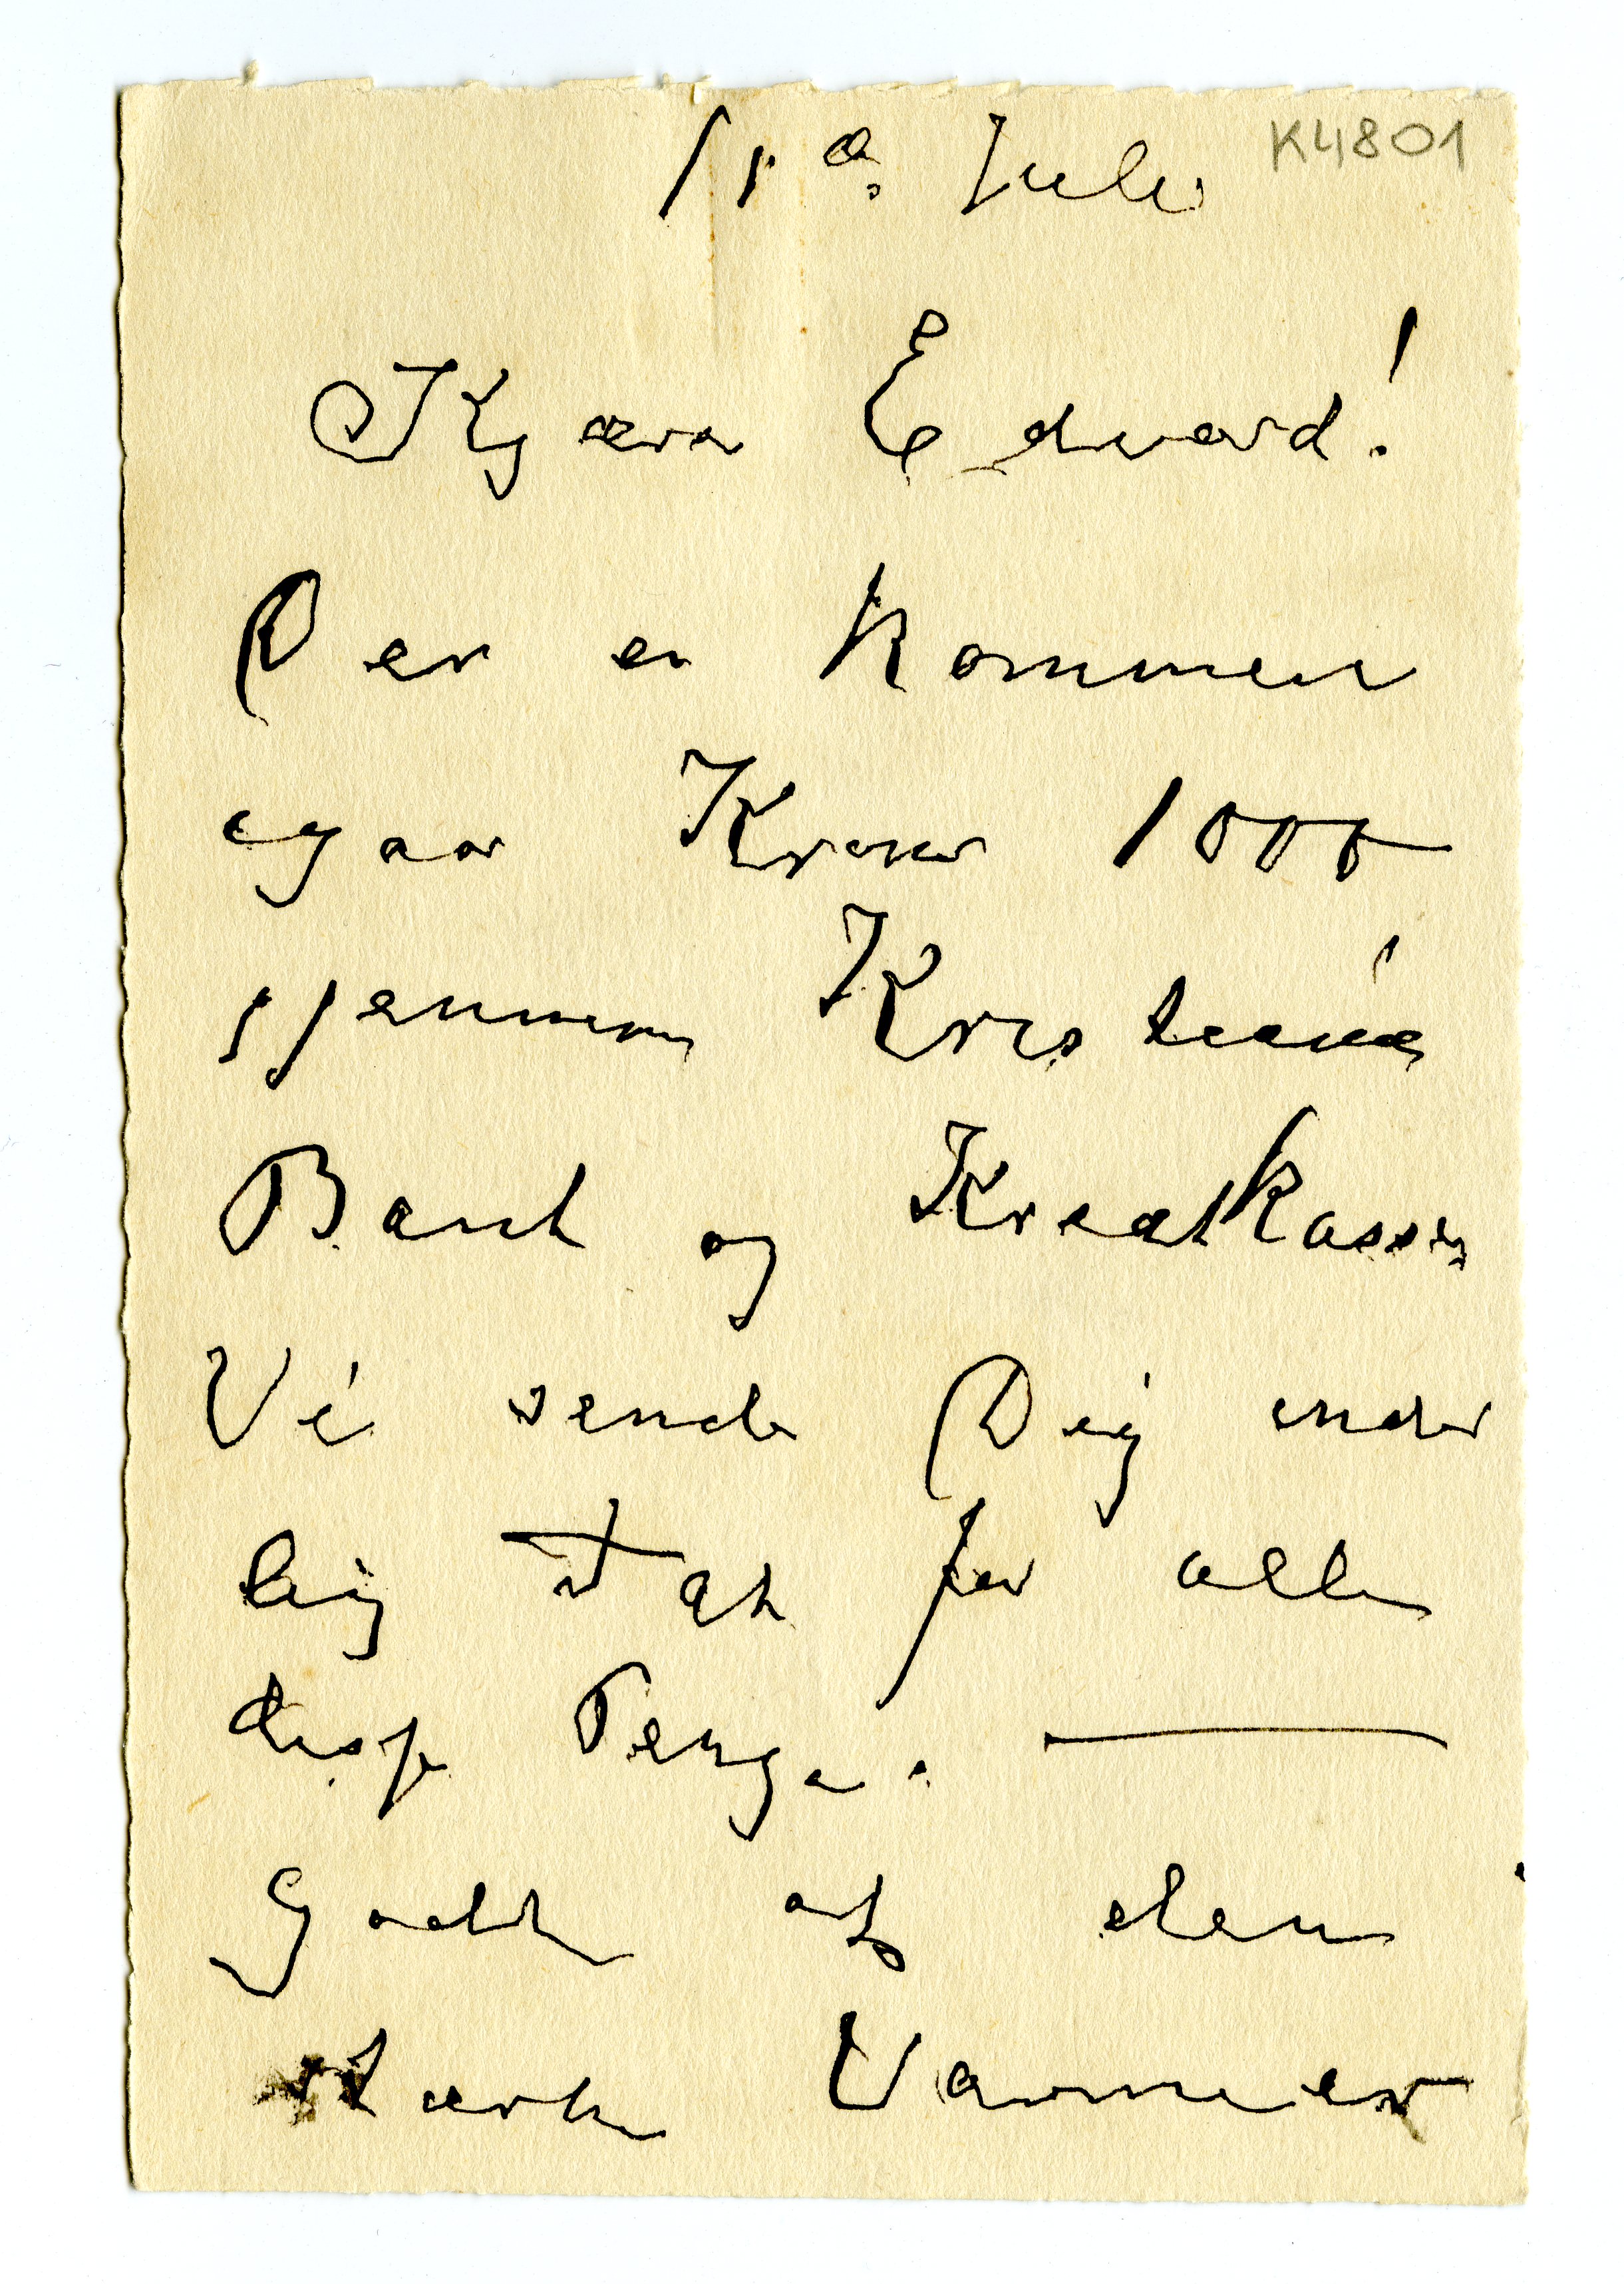 K4801
11 Juli
Kjære Edvard!
Der er kommen
igaar Kroner 1000
gjennem Kristiania
Bank og Kreditkasse,
Vi sende Dig inder
lig Tak for alle
disse Penge. —
Godt at den
stærke Varme er